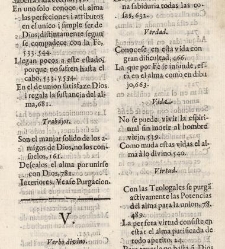 En uno solo conoce el alma
las perfecciones i atributos
en el unico i simple ser de
Dios, distintamente segun
se compadece con la Fè,
533. 544.
Llegan pocos a este estado,
porque no salen hasta el
cabo, 533. y 534.
En el de union satisface Dios
i regala la sustancia del al-
ma, 681.
Trabajos.
Son el manjar solido de los a-
migos de Dios, no los con-
suelos, 161.
Desealos el alma por unirse
con Dios, 781.
Interiores, Vease Purgacion.
V.
Verbo divino.
na sabiduria todas las co-
sas, 632.
Verdad.
Conocese en esta vida con
gran dificultad, 466.
La que por Fè se infunde, esta
en el alma como en dibu
jo, 683.
Vida.
No se puede vivir la espiri-
tual sin morir al hombre
viejo, 539.
Como muda estas vidas el al-
ma a lo divino, 540.
Virtud.
Con las Teologales se purga
activamente las Potencias
del alma para la union, 78.
489.
La perfeta virtud consiste en
estar el alma purificada de
todo apetito,